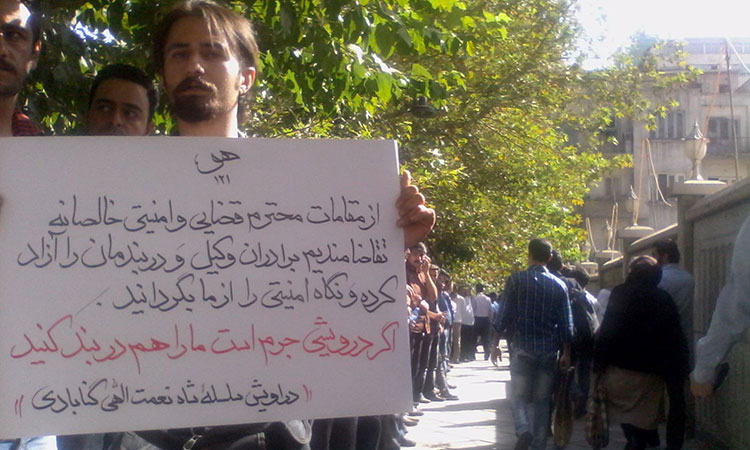 هو
۱۲۱
از مقامات محترم قضایی و امنیتی خالصانه
تقاضامندیم برادران وکیل و دربندمان را آزاد
کرده و نگاه امنیتی را از ما بگردانید .
اگر درویشی جرم است ما را هم در بند کنید
(( دراویش سلسلهٔ شاه نعمت اللهی گنابادی ))